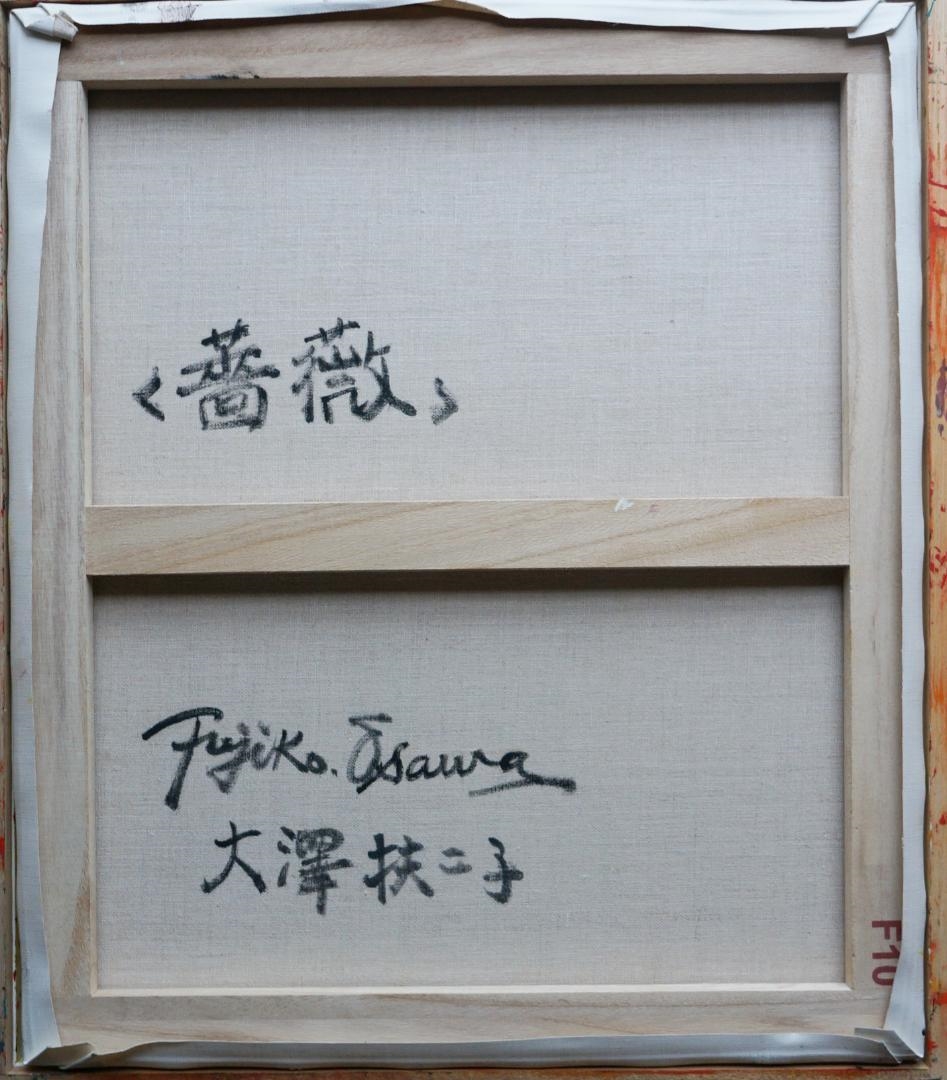 〈薔薇〉
Fujiko. Ōsawa
大澤扶二子
F10